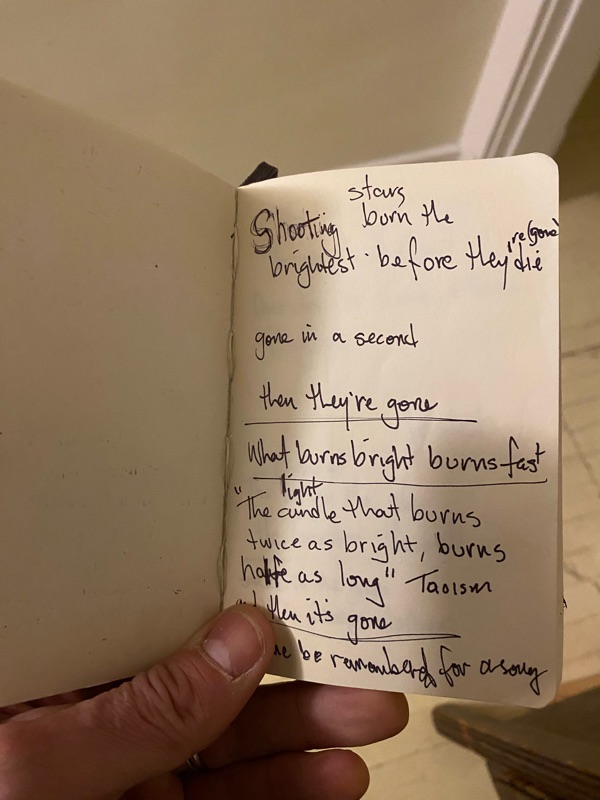 Shooting stars burn the
brightest · before they're (gone) die
gone in a second
then they're gone
What burns bright burns fast
light
"The candle that burns
twice as bright, burns
halfe as long" Taoism
then it's gone
be remembered for a song